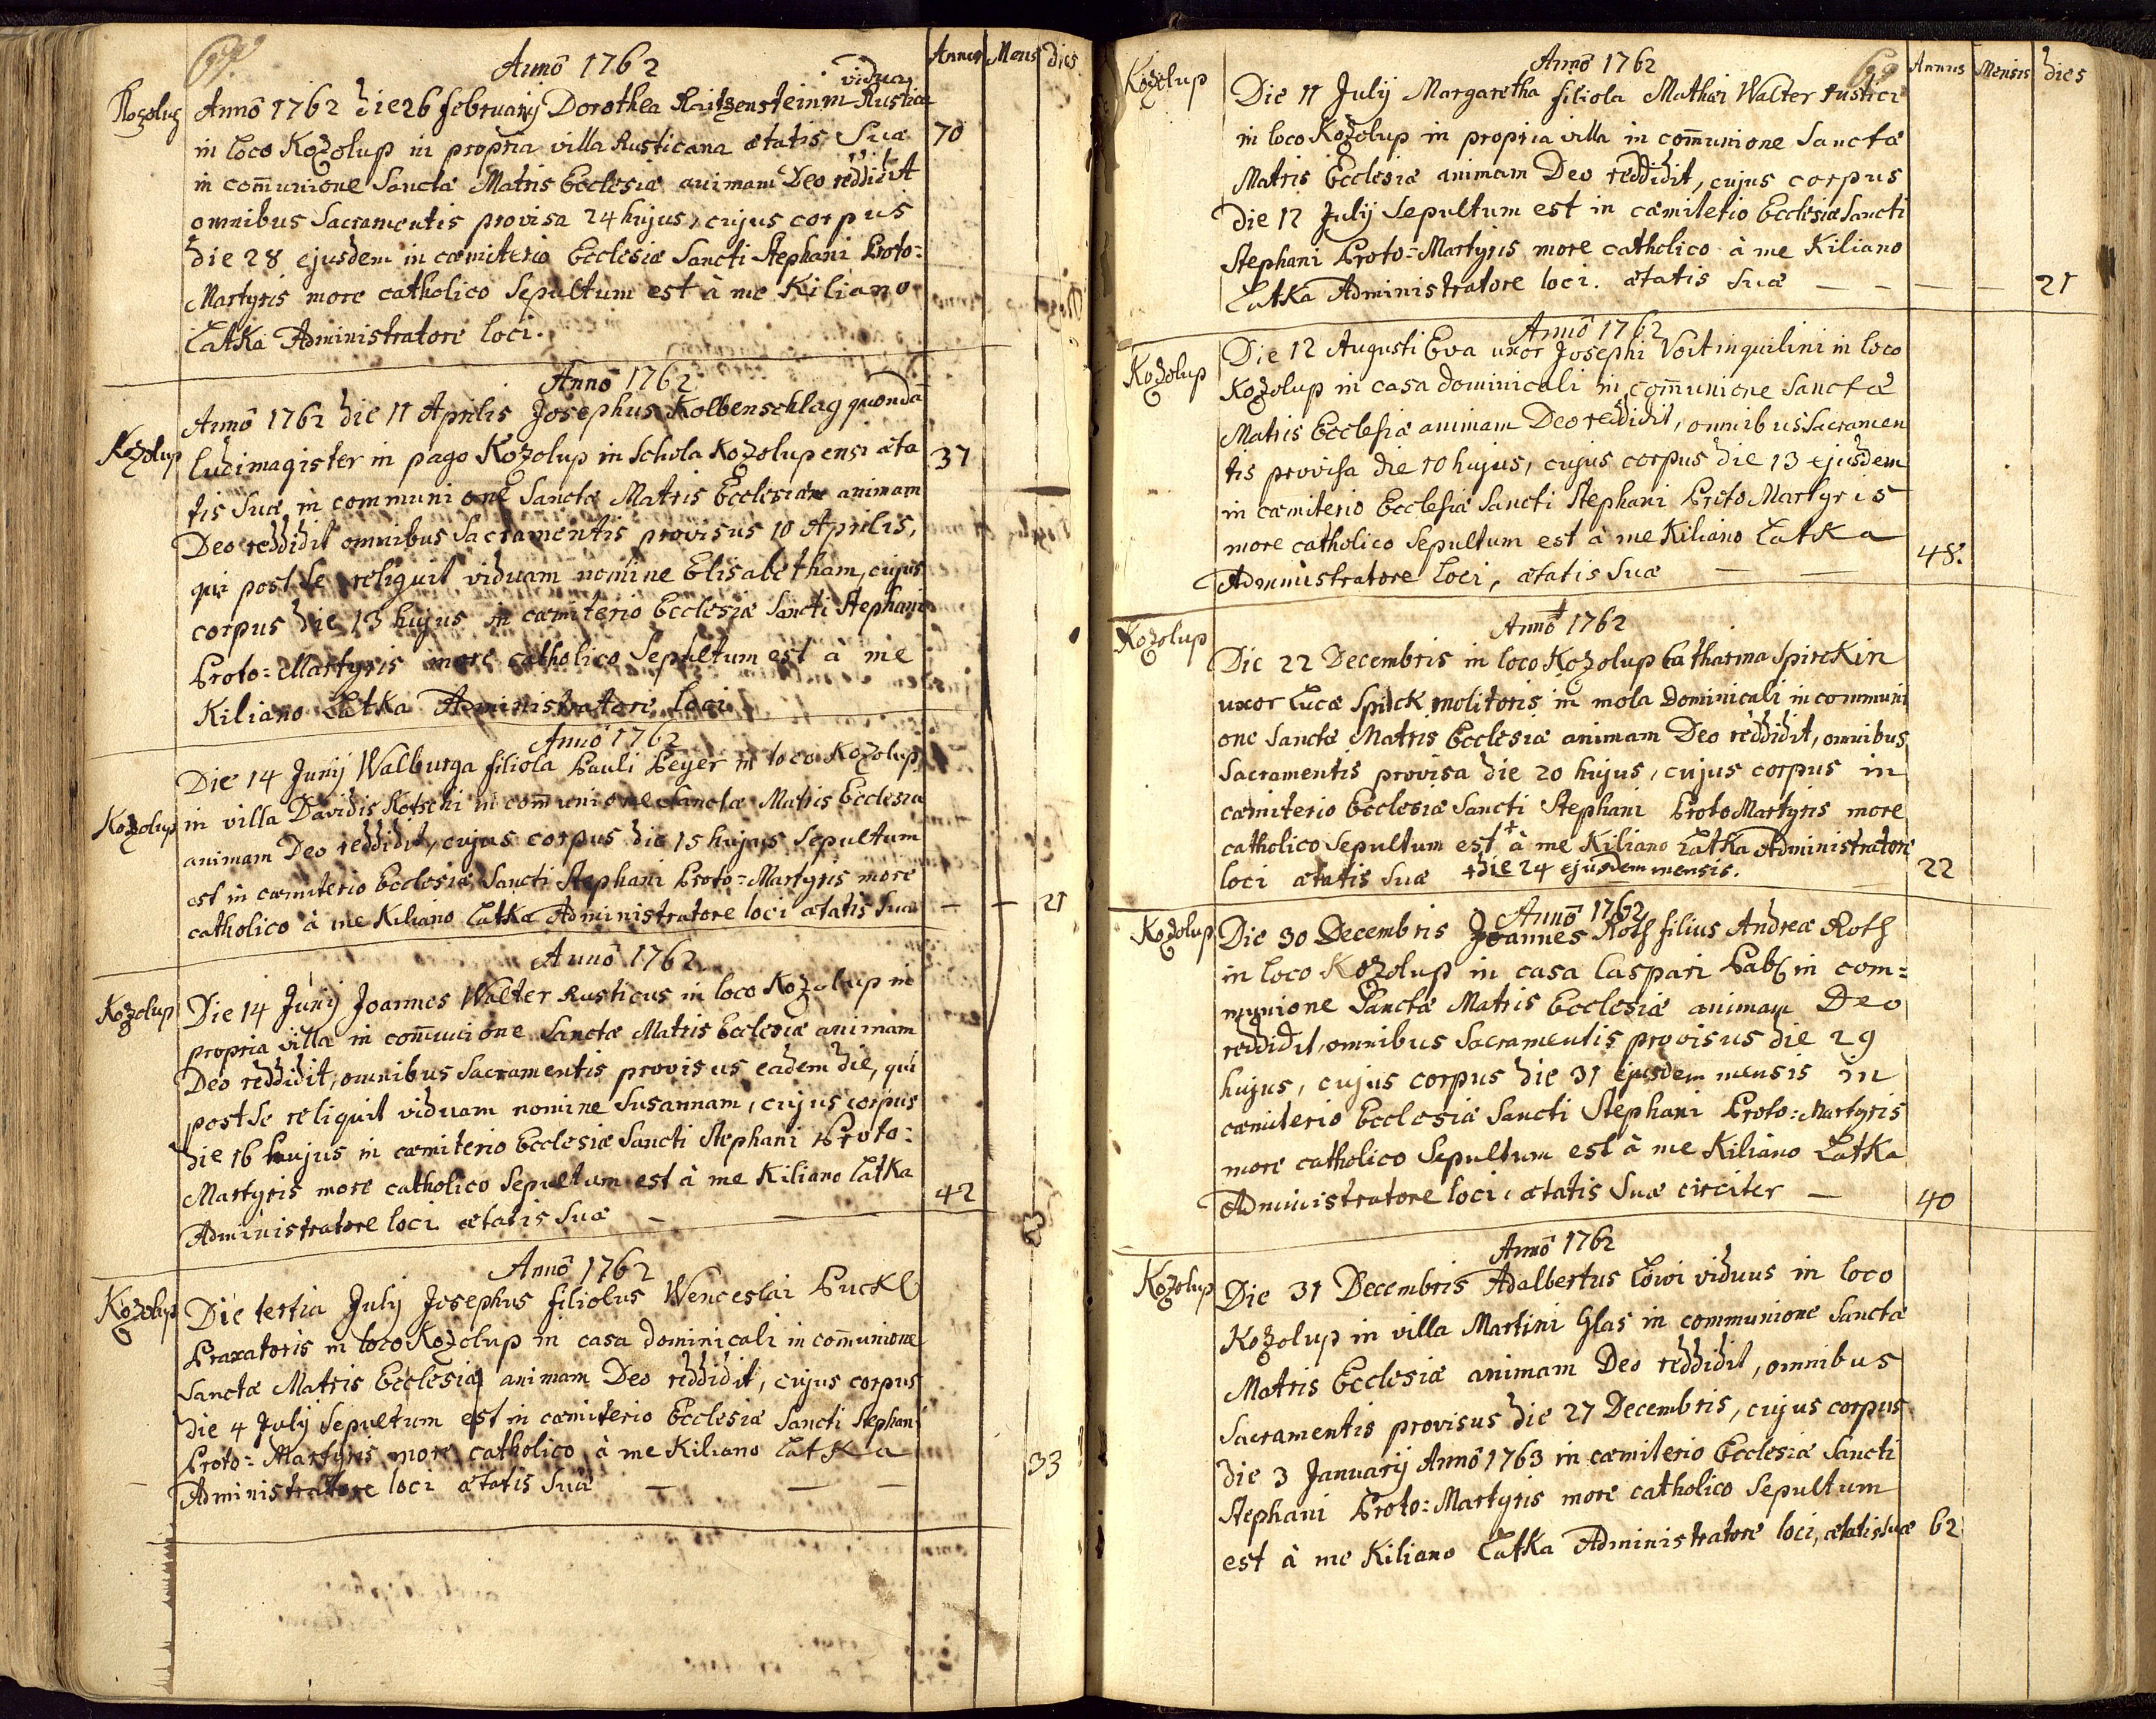 Annus Mens dies
Anno 1762
vidua
Kozolup Anno 1762 die 26 februarij Dorothea Raitzensteinin Rustica
in loco Kozolup in propria villa Rusticana ætatis Suæ 70
in com̄unione Sanctæ Matris Ecclesiæ animam Deo reddidit
omnibus Sacramentis provisa 24 hujus, cujus corpus
die 28 ejusdem in cæmiterio Ecclesiæ Sancti Stephani Proto=
Martyris more catholico Sepultum est à me Kiliano
Latka Administratore loci.
Anno 1762
Anno 1762 die 11 Aprilis Josephus Kolbenschlag quondā
Kozolup ludimagister in pago Kozolup in Schola Kozolupensi æta 37
tis Suæ in communione Sanctæ Matris Ecclesiæ animam
Deo reddidit omnibus Sacramentis provisus 10 Aprilis,
qui post Se reliquit viduam nomine Elisabetham, cujus
corpus die 13 hujus in cæmiterio Ecclesiæ Sancti Stephani
Proto=Martyris more catholico Sepultum est à me
Kiliano Latka Administratore loci
Anno 1762
Die 14 Junij Walburga filiola Pauli Peyer in loco Kozolup
Kozolup in villa Davidis Kotschi in com̄unione Sanctæ Matris Ecclesiæ
animam Deo reddidit, cujus corpus die 15 hujus Sepultum
est in cæmiterio Ecclesiæ Sancti Stephani Proto=Martyris more
catholico à me Kiliano Latka Administratore loci ætatis Suæ — — 21
Anno 1762
Kozolup Die 14 Junij Joannes Walter Rusticus in loco Kozolup in
propria villa in com̄unione Sanctæ Matris Ecclesiæ animam
Deo reddidit, omnibus Sacramentis provisus eadem die, qui
post Se reliquit viduam nomine Susannam, cujus corpus
die 16 hujus in cæmiterio Ecclesiæ Sancti Stephani Proto=
Martyris more catholico Sepultum est à me Kiliano Latka
Administratore loci ætatis Suæ — — 42
Anno 1762
Kozolup Die tertia July Josephus filiolus Wenceslai Puckl
Praxatoris in loco Kozolup in casa dominicali in com̄unione
Sanctæ Matris Ecclesiæ animam Deo reddidit, cujus corpus
die 4 July Sepultum est in cæmiterio Ecclesiæ Sancti Stephani
Proto=Martyris more catholico à me Kiliano Latka
Administratore loci ætatis Suæ — — — 33
Annus Mensis dies
Anno 1762
Kozolup Die 11 July Margaretha filiola Mathæi Walter rustici
in loco Kozolup in propria villa in com̄unione Sanctæ
Matris Ecclesiæ animam Deo reddidit, cujus corpus
die 12 July Sepultum est in cæmiterio Ecclesiæ Sancti
Stephani Proto=Martyris more catholico à me Kiliano
Latka Administratore loci. ætatis Suæ — — — — 21
Anno 1762
Kozolup Die 12 Augusti Eva uxor Josephi Voit inquilini in loco
Kozolup in casa dominicali in com̄unione Sanctæ
Matris Ecclesiæ animam Deo reddidit, omnibus Sacramen
tis provisa die 10 hujus, cujus corpus die 13 ejusdem
in cæmiterio Ecclesiæ Sancti Stephani Proto Martyris
more catholico Sepultum est à me Kiliano Latka
Administratore loci, ætatis Suæ — — 48.
Anno 1762
Kozolup Die 22 Decembris in loco Kozolup Catharina Spirckin
uxor Lucæ Spirck molitoris in mola Dominicali in communi
one Sanctæ Matris Ecclesiæ animam Deo reddidit, omnibus
Sacramentis provisa die 20 hujus, cujus corpus in
cæmiterio Ecclesiæ Sancti Stephani Proto Martyris more
catholico Sepultum est + à me Kiliano Latka Administratore
loci ætatis Suæ + die 24 ejusdem mensis. 22
Anno 1762
Kozolup Die 30 Decembris Joannes Roth filius Andreæ Roth
in loco Kozolup in casa Caspari in com=
munione Sanctæ Matris Ecclesiæ animam Deo
reddidit, omnibus Sacramentis provisus die 29
hujus, cujus corpus die 31 ejusdem mensis in
cæmiterio Ecclesiæ Sancti Stephani Proto=Martyris
more catholico Sepultum est à me Kiliano Latka
Administratore loci, ætatis Suæ circiter — 40
Anno 1762
Kozolup Die 31 Decembris Adalbertus Löwi viduus in loco
Kozolup in villa Martini Glas in communione Sanctæ
Matris Ecclesiæ animam Deo reddidit, omnibus
Sacramentis provisus die 27 Decembris, cujus corpus
die 3 Januarij Anno 1763 in cæmiterio Ecclesiæ Sancti
Stephani Proto=Martyris more catholico Sepultum
est à me Kiliano Latka Administratore loci, ætatis Suæ 62